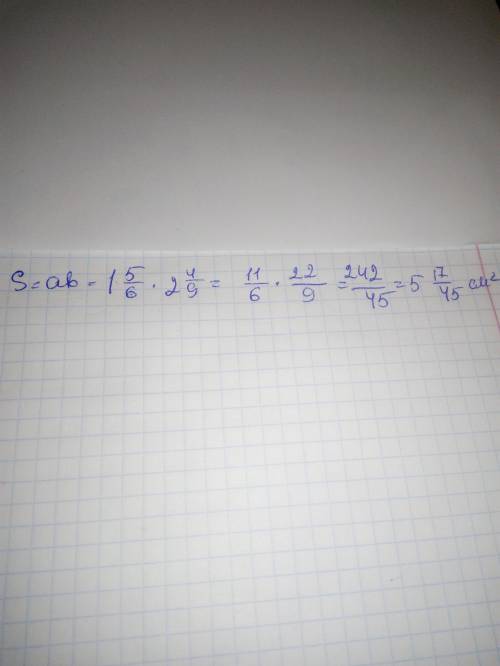 S = ab = 1 5/6 · 2 4/9 = 11/6 · 22/9 = 242/45 = 5 17/45 см²